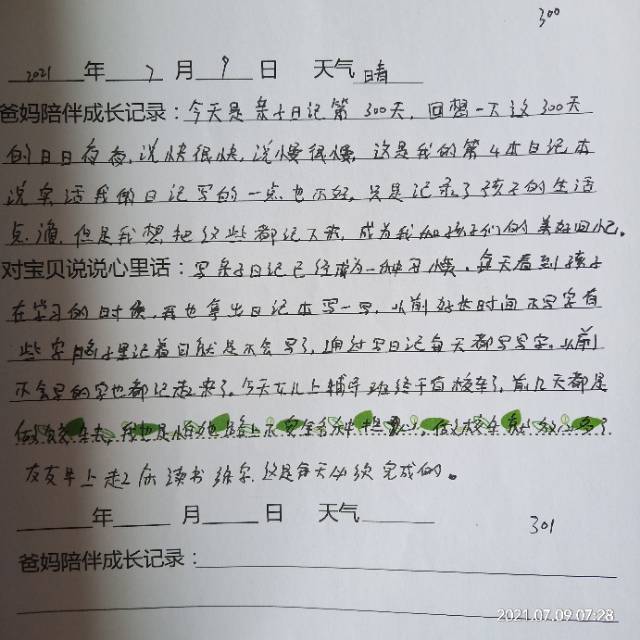 300
2021年7月9日 天气晴
爸妈陪伴成长记录：今天是亲子日记第300天，回想一下这300天
的日日夜夜，说快很快，说慢很慢，这是我的第4本日记本
说实话我的日记写的一点也不好，只是记录了孩子的生活
点滴，但是我想把这些都记下来，成为我和孩子们的美好回忆。
对宝贝说说心里话：写亲子日记已经成为一种习惯，每天看到孩子
在学习的时候，我也拿出日记本写一写，以前好长时间不写字有
些字脑子里记着可就是不会写了，通过写日记每天都写写字，以前
不会写的字也都记起来了。今天女儿上辅导班终于有校车了，前几天都是
友友早上起来读书练字，这是每天必须完成的。
年 月 日 天气
301
爸妈陪伴成长记录：
2021.07.09 07:28